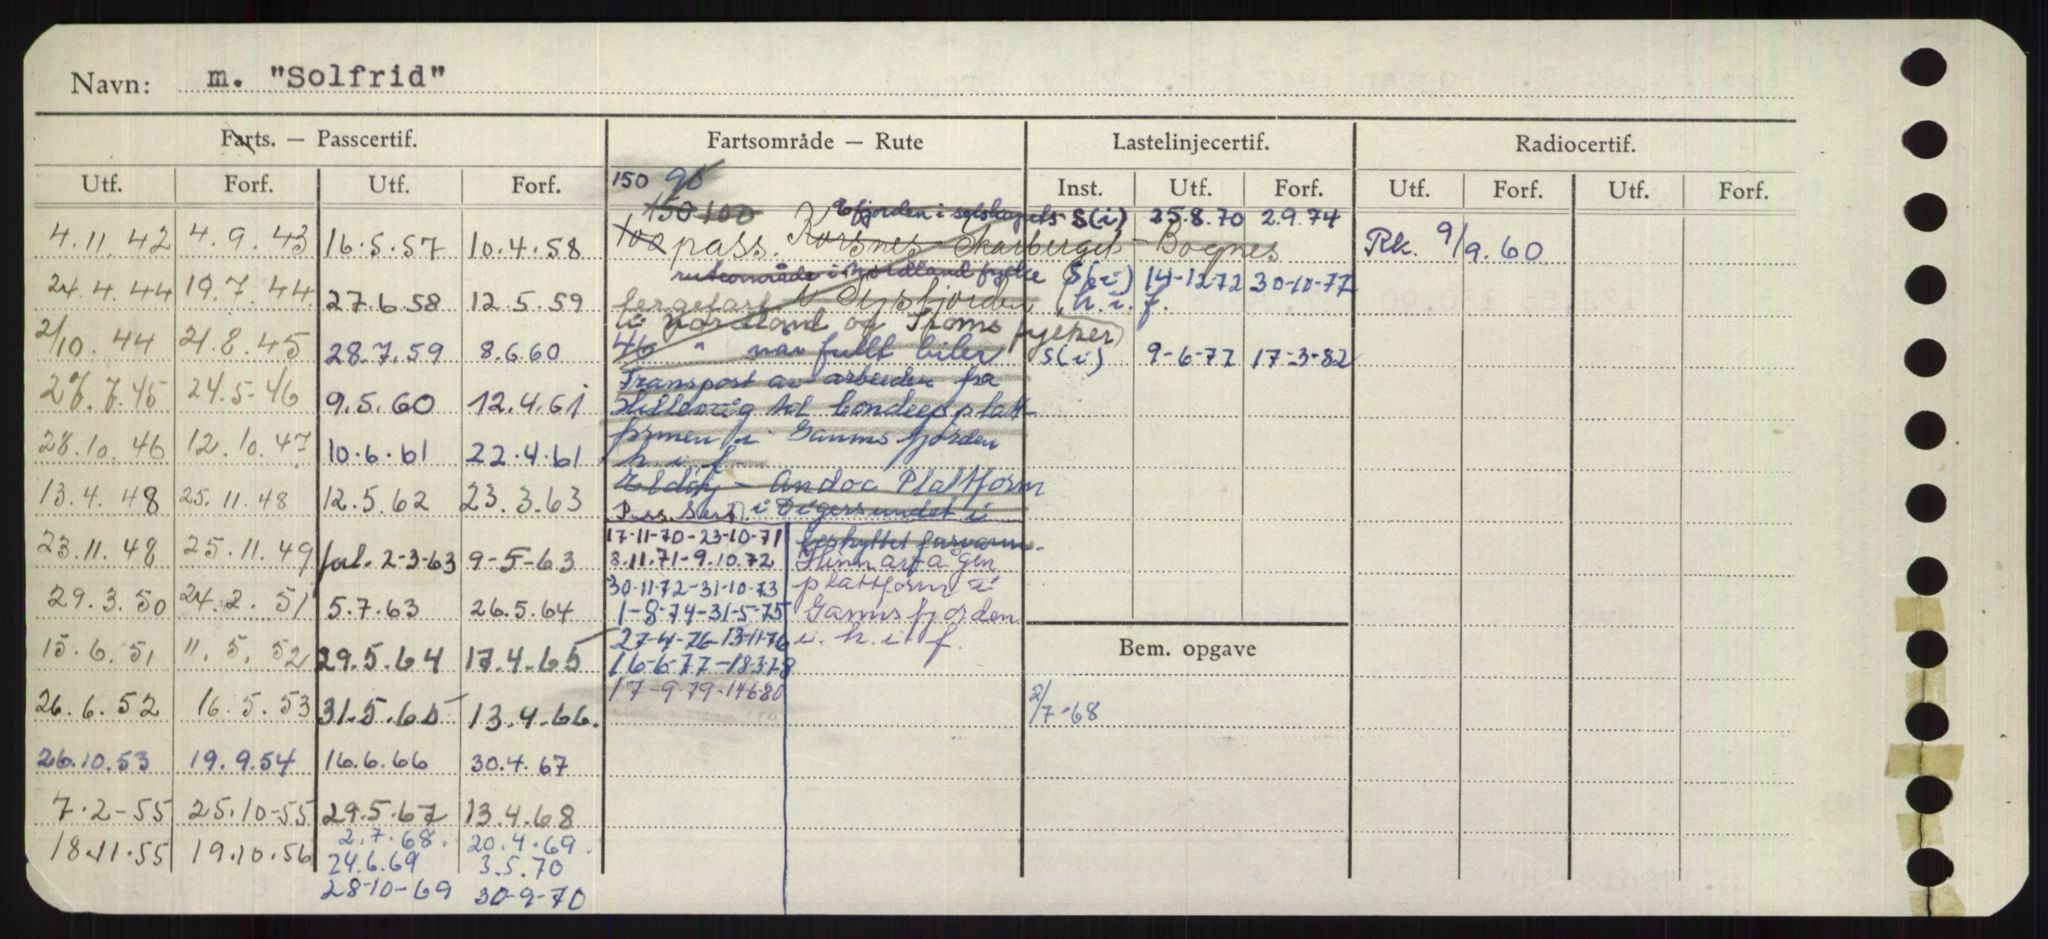 Navn: m. "Solfrid"
Farts. — Passcertif. Fartsområde — Rute Lastelinjecertif. Radiocertif.
Utf. Forf. Utf. Forf. 150 90 Inst. Utf. Forf. Utf. Forf. Utf. Forf.
150 100 i selskapets S(i) 25.8.70 2.9.74
4.11.42 4.9.43 16.5.57 10.4.58 100 pass. Korsnes - Skarberget - Bognes Rk. 9/9.60
ruteområde i Nordland fylke S(i) 14-12-72 30-10-77
24.4.44 19.7.44 27.6.58 12.5.59 fergefart Tysfjorden (h.i.f.
i Nordland og Troms fylker)
2/10.44 21.8.45 28.7.59 8.6.60 46 " når fullt biler S(i) 9-6-77 17-3-82
Transport av arbeider fra
27.7.45 24.5-46 9.5.60 12.4.61 til Condeepplatt-
28.10.46 12.10.47 10.6.61 22.4.61 formen i Gannsfjorden
h.i.f.
13.4.48 25.11.48 12.5.62 23.3.63 Eldøy - Andoc Plattform
Pass. Sert. i Digersundet i
17-11-70-23-10-71 beskyttet farvann.
23.11.48 25.11.49 forl. 2-3-63 9-5-63 8.11.71-9.10.72 Hinnavågen
30-11-72-31-10-73 plattform i
29.3.50 24.2.51 5.7.63 26.5.64 1-8-74-31-5-75 Gannsfjorden
27-4-76-13-11-76 i. h. i. f.
15.6.51 11.5.52 29.5.64 17.4.65 16-6-77-18-3-78 Bem. opgave
17-9-79-14-6-80
26.6.52 16.5.53 31.5.65 13.4.66. 2/7-68
26.10.53 19.9.54 16.6.66 30.4.67
7.2-55 25.10-55 29.5.67 13.4.68
2.7.68. 20.4.69.
18.11.55 19.10.56 24.6.69 3.5.70
28-10-69 30-9-70